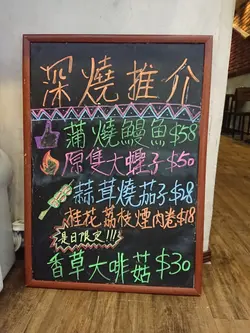 深燒推介
蒲燒鰻魚 $58
原隻大蟶子 $50
蒜茸燒茄子 $28
桂花荔枝煙肉卷 $18
是日限定!!!
香草大啡菇 $30